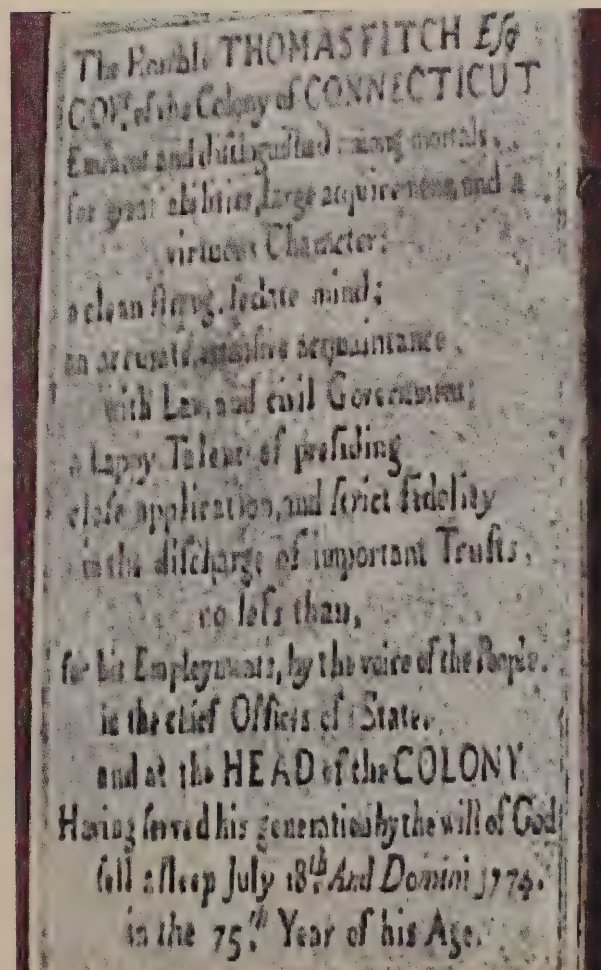 The Honble THOMAS FITCH Eſq
GOVr. of the Colony of CONNECTICUT
Eminent and diſtinguiſhed among mortals,
for great abilities, large acquirements, and a
virtuous Character;
a clean ſtrong, ſedate mind;
an accurate, extenſive acquaintance,
with Law, and civil Government;
a happy Talent of preſiding
cloſe application, and ſtrict fidelity
in the diſcharge of important Truſts,
no leſs than,
for his Employments, by the voice of the People,
in the chief Offices of State,
and at the HEAD of the COLONY.
Having ſerved his generation by the will of God
fell aſleep July 18th. Domini 1774.
in the 75th. Year of his Age.